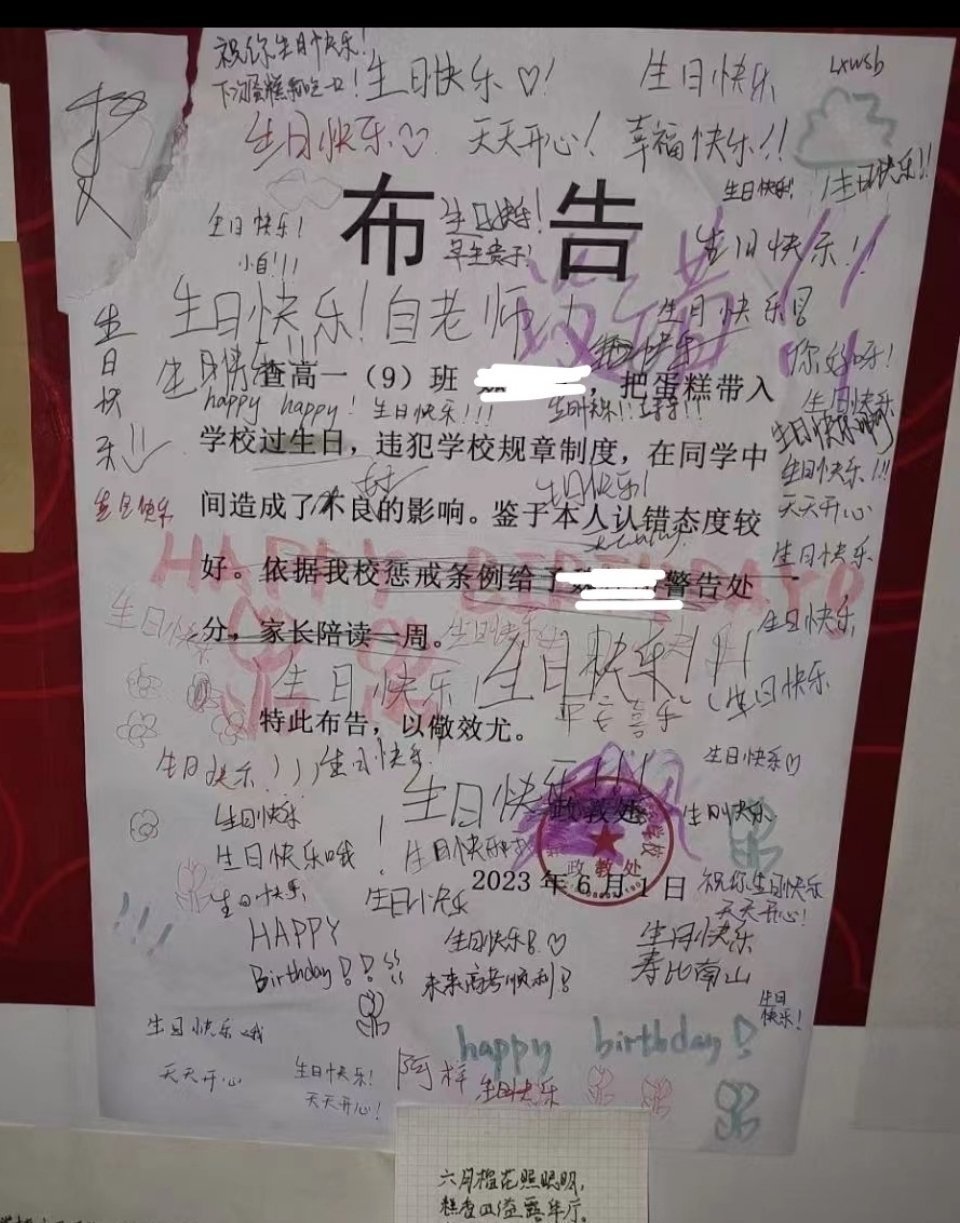 祝你生日快乐!
下次蛋糕我吃一口!
生日快乐♡!
生日快乐
Lxwsb
生日快乐♡
天天开心!
幸福快乐!!
生日快乐!
生日快乐!!
布告
生日快乐!
早生贵子!
生日快乐!
小自!!!
生日快乐!!
生日快乐!白老师!
生日快乐
你好呀!
生日快乐!!
查高一（9）班
，把蛋糕带入
happy happy!
生日快乐!!!
生日快乐
学校过生日，违犯学校规章制度，在同学中
生日快乐!!!
生日快乐!
天天开心
间造成了不良的影响。鉴于本人认错态度较
生日快乐
生日快乐
HAPPY BIRTHDAY
好。依据我校惩戒条例给予
警告处
生日快乐
生日快乐
分，家长陪读一周。
生日快乐
生日快乐!!!
生日快乐
平安喜乐
特此布告，以儆效尤。
生日快乐
生日快乐
生日快乐♡
生日快乐!!!
政教处
生日快乐
生日快乐
生日快乐哦
政教处
2023年6月1日
祝你生日快乐
天天开心!
生日快乐
生日快乐
HAPPY
Birthday!!
生日快乐!♡
未来高考顺利!
生日快乐
寿比南山
生日
快乐!
生日快乐哦
天天开心
生日快乐!
天天开心!
happy birthday!
阿梓
生日快乐
六月榴花照眼明，